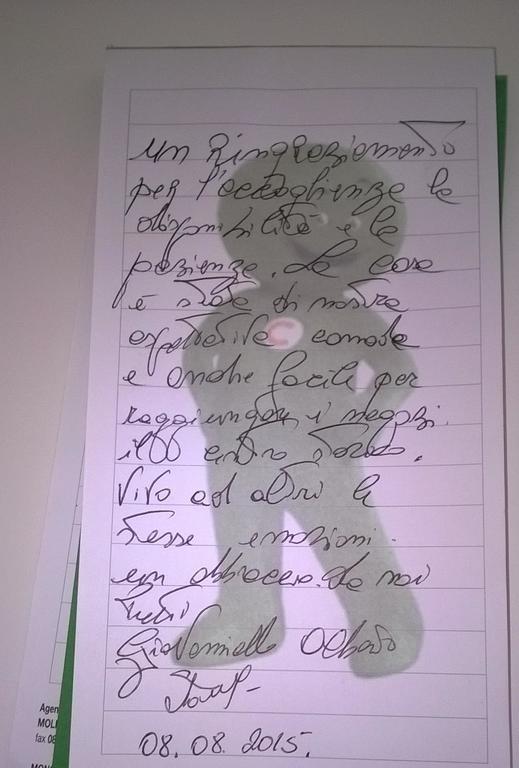 un Ringraziamento
per l'accoglienza la
disponibilità e la
pazienza. La casa
è stata di nostra
aspettativa comoda
e anche facile per
raggiungere i negozi.
il centro storico.
Vivo ad altri le
stesse emozioni.
un abbraccio. Da noi
tutti
Giovanniello
08.08.2015.
Agen
MOLI
fax 08